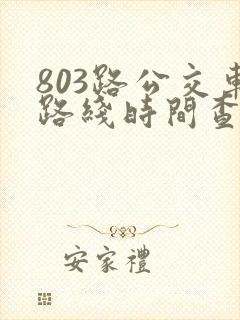 803路公交車
路綫時間查
安家禮